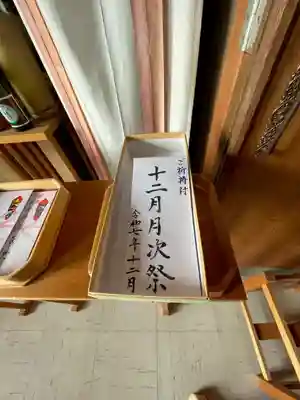 ご祈祷付
十二月月次祭
令和七年十二月